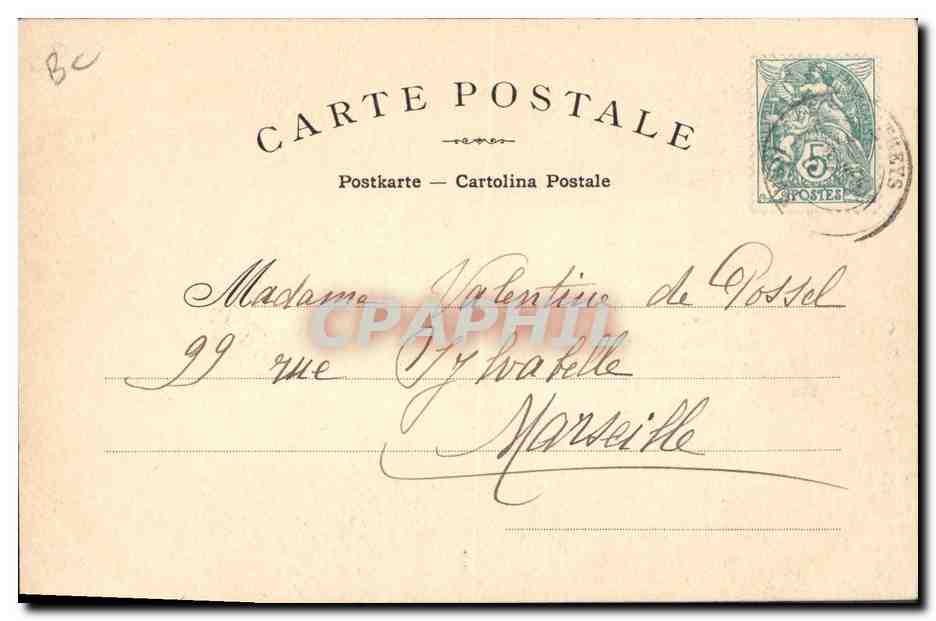 BC
CARTE POSTALE
Postkarte — Cartolina Postale
5
POSTES
Madame Valentine de Possel
99 rue Sylvabelle
Marseille
CPAPHIL